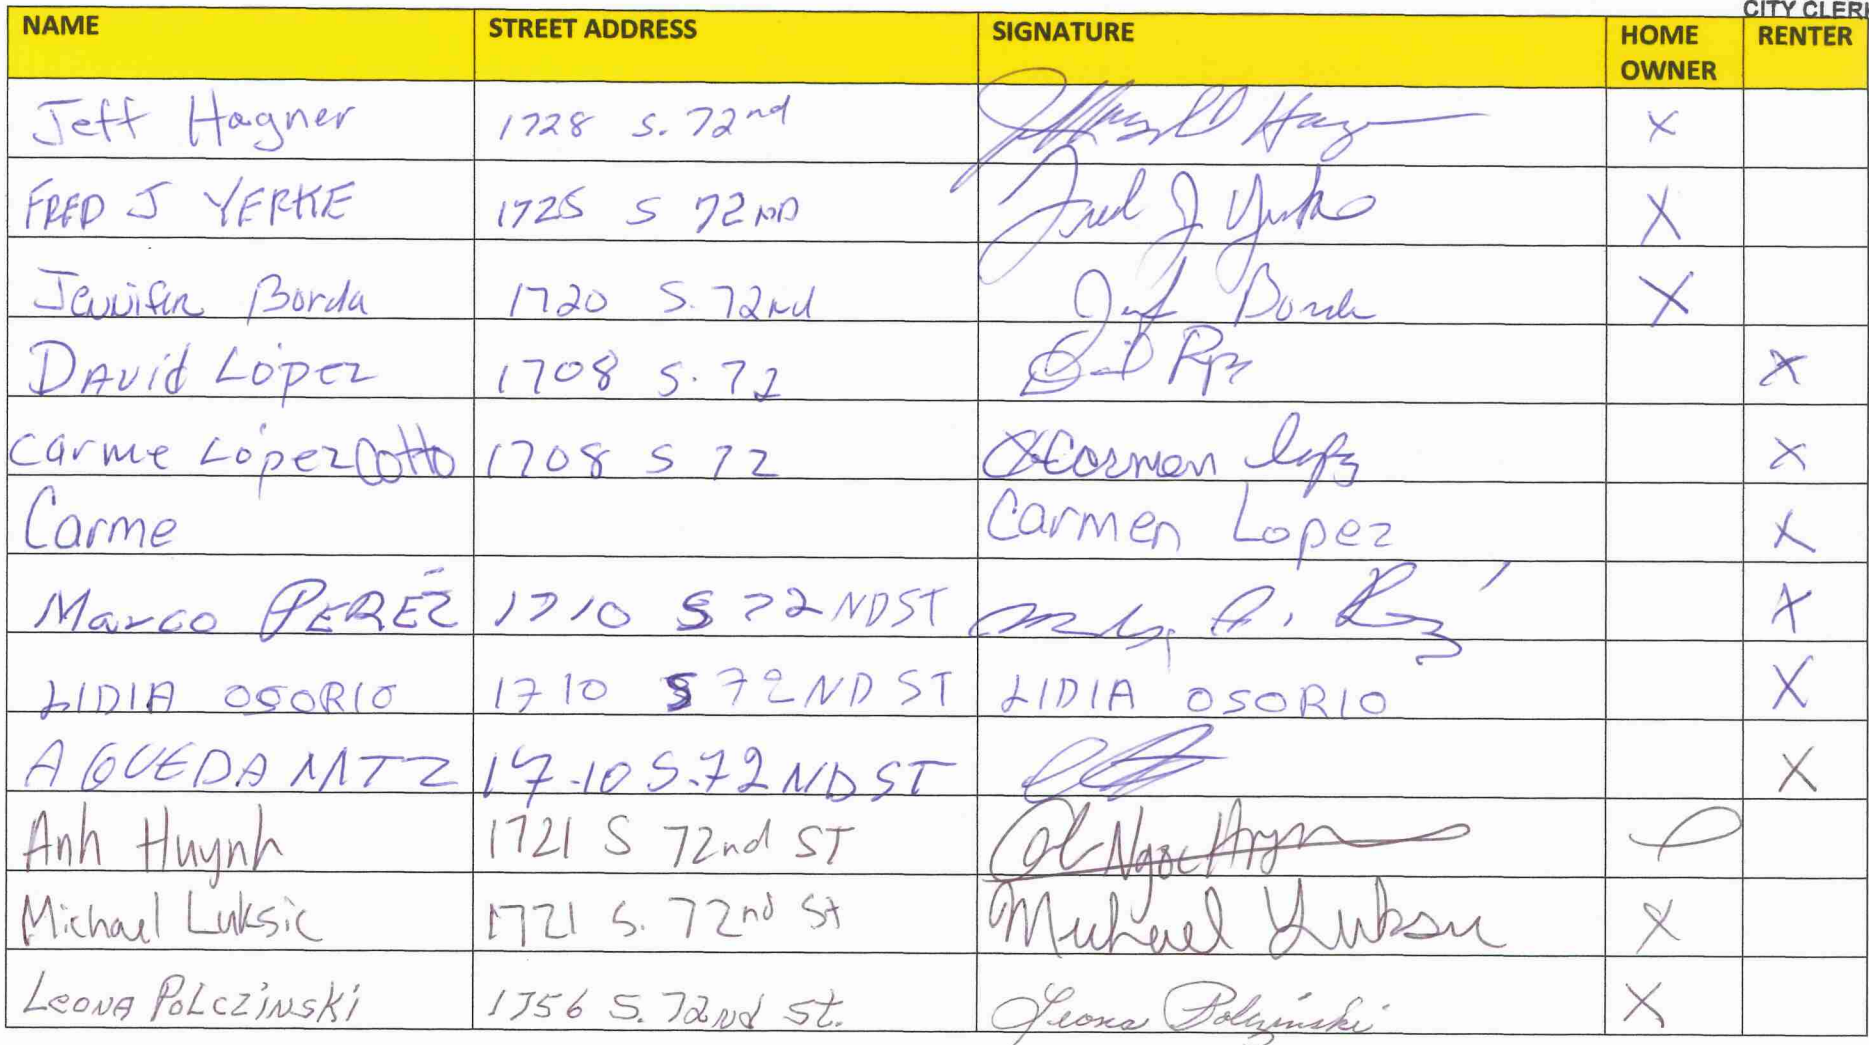 CITY CLER
NAME STREET ADDRESS SIGNATURE HOME OWNER RENTER
Jeff Hagner 1728 S. 72nd X
FRED J YERKE 1725 S 72ND Fred J Yerke X
Jennifer Borda 1720 S. 72nd Borda X
DAvid López 1708 S. 72 X
Carme López Cotto 1708 S 72 Carmen X
Carme Carmen Lopez X
Marco PEREZ 1710 S 72NDST X
LIDIA OSORIO 1710 S 72ND ST LIDIA OSORIO X
AGUEDA MTZ 1710 S.72NDST X
Anh Huynh 1721 S 72nd ST Ngoc
Michael Luksic 1721 S. 72nd St Michael Luksic X
Leona Polczinski 1756 S. 72nd St. Leona Polczinski X